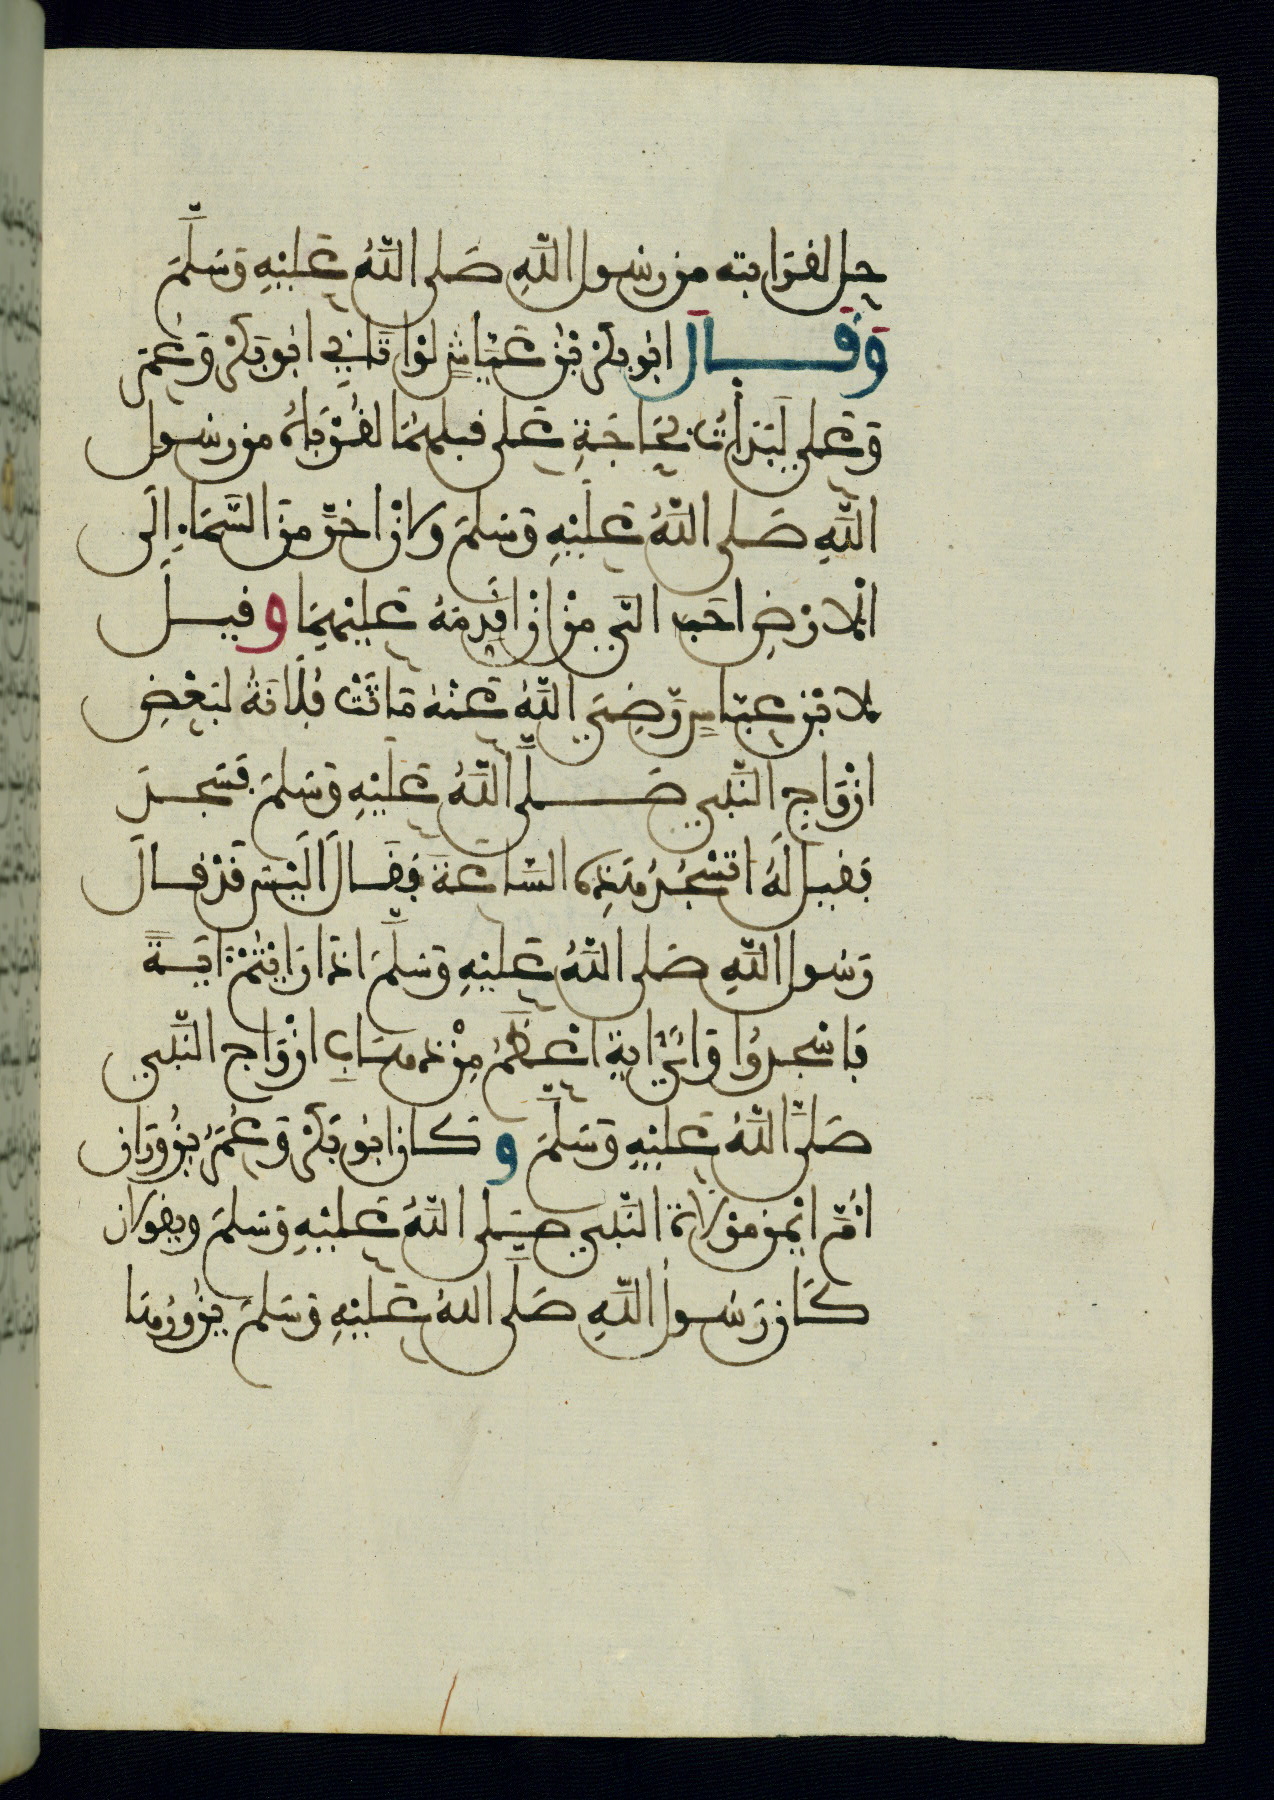 حل لقرابته من رسول اللّهِ صَلى اللّهُ عَلَيْهِ وَسَلَّمَ
وَقَالَ ابُو بَكْر بْن عَيّاشٍ لَوْ اتَانِي ابُو بَكْر وَعُمَر
وَعَلي لَبَدَأْتُ بِحَاجَةِ عَلي قبلهمَا لقُرْبَاهُ من رسول
اللّهِ صَلى اللّهُ عَلَيْهِ وَسَلمَ ولانْ اخرّ مِنَ السَّمَاءِ الَى
الْارْضِ احَب الَيّ مِنْ انْ اقَدِمَهُ عَلَيْهِمَا وقيل
لابْن عبّاس رَّضِىَ اللّهُ عَنْهُ مَاتَتْ فُلَانَةُ لبَعْضِ
ازْوَاجِ النّبي صَلى اللّهُ عَلَيْهِ وَسَلمَ فَسَجدَ
فَقيل لَهُ اتسْجُدُ هَذِه السّاعَة فَقَالَ الَيْسَ قَدْ قالَ
رَسُول اللّهِ صَلى اللّهُ عَلَيْهِ وَسَلَّمَ اذَا رَايْتُمْ ايَةً
فَاسْجدُوا وَايُّ ايةِ اعْظَمُ مِنْ ذهَابِ ازْوَاج النّبي
صَلَّى اللّهُ عَلَيْهِ وَسَلَّمَ وكان ابُو بَكْر وَعُمَرُ يزُورَان
امّ ايْمن مَوْلاة النّبي صَلى اللّهُ عَلَيْهِ وَسَلمَ ويقولان
كَان رَسُولُ اللّهِ صَلَّى اللهُ عَلَيْهِ وَسَلمَ يزُورُهَا